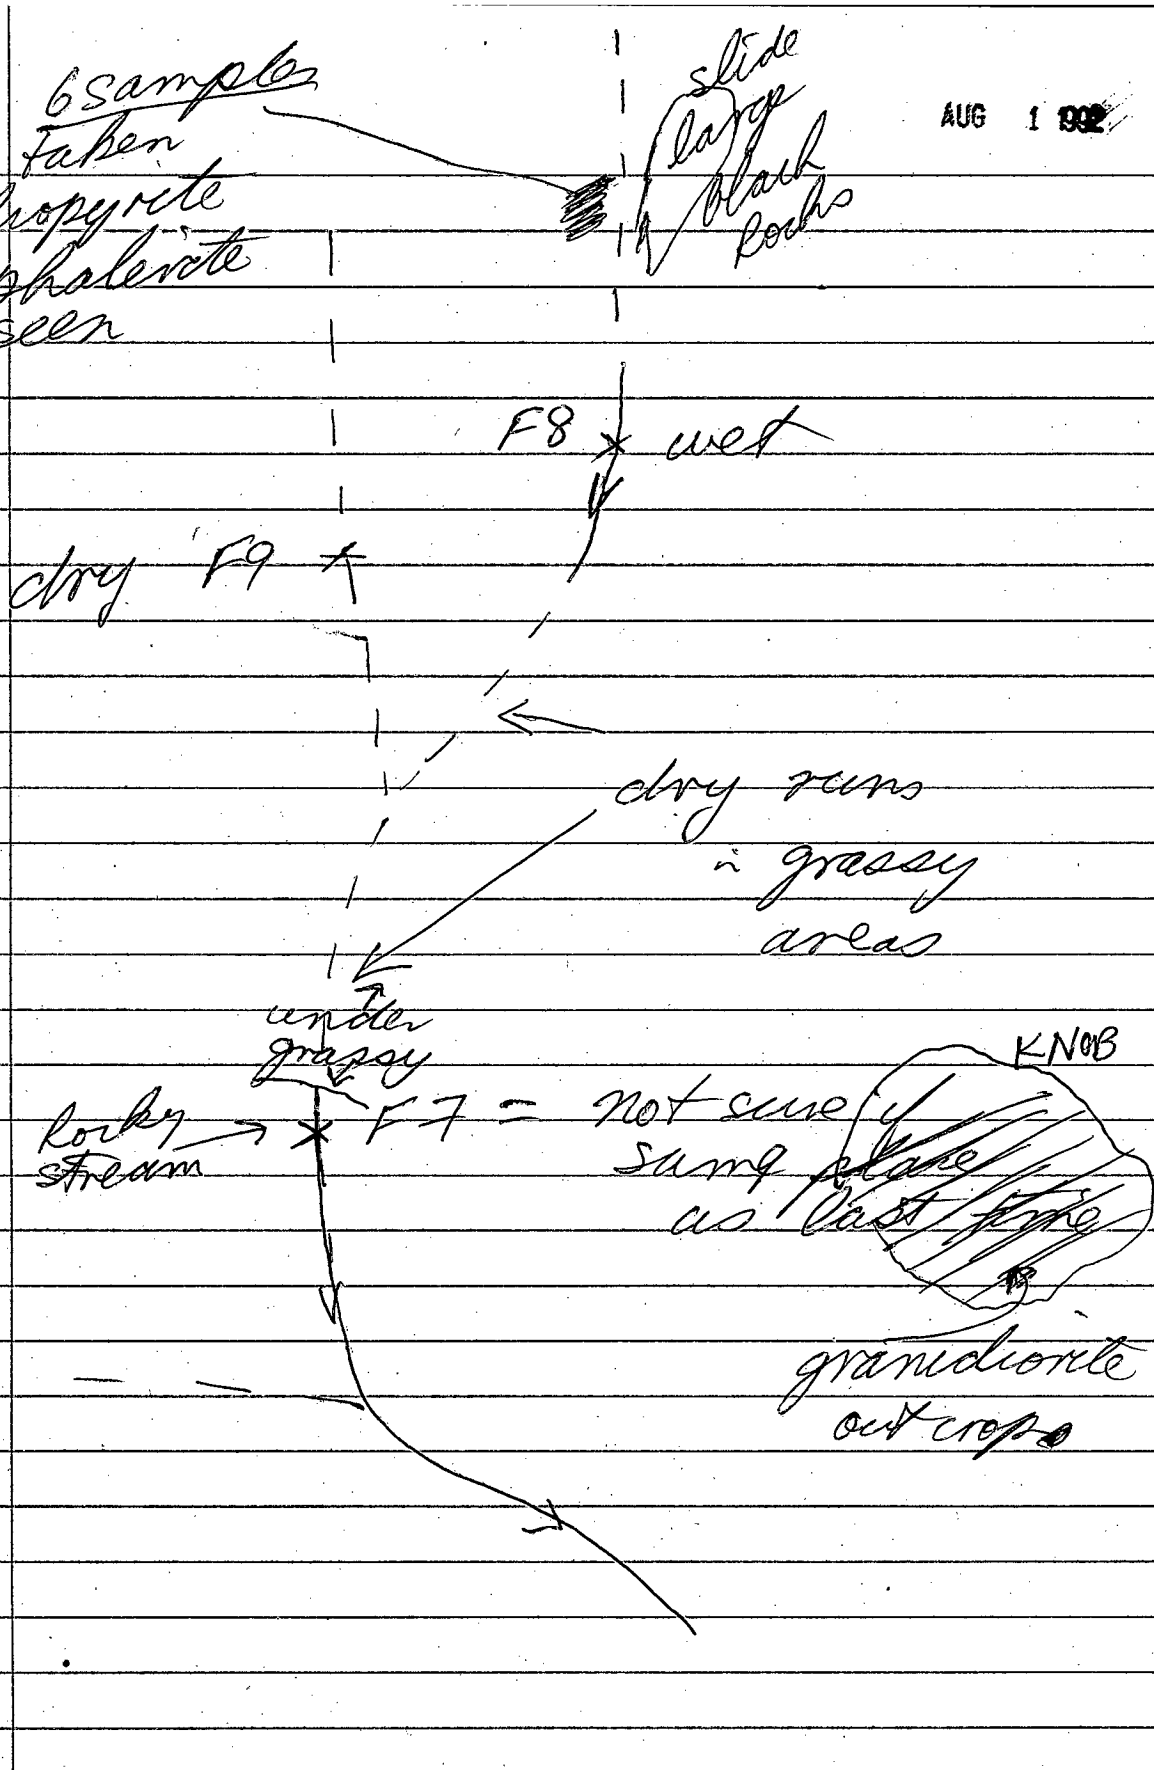 6 samples
Taken
ropyrite
phalerite
seen
slide
large
black
Rocks
AUG 1 1992
F8 wet
dry F9
dry runs
in grassy
areas
under
grassy
Rocky
stream
F7 = not sure if
same place
as last time
KNOB
granidiorite
outcrop